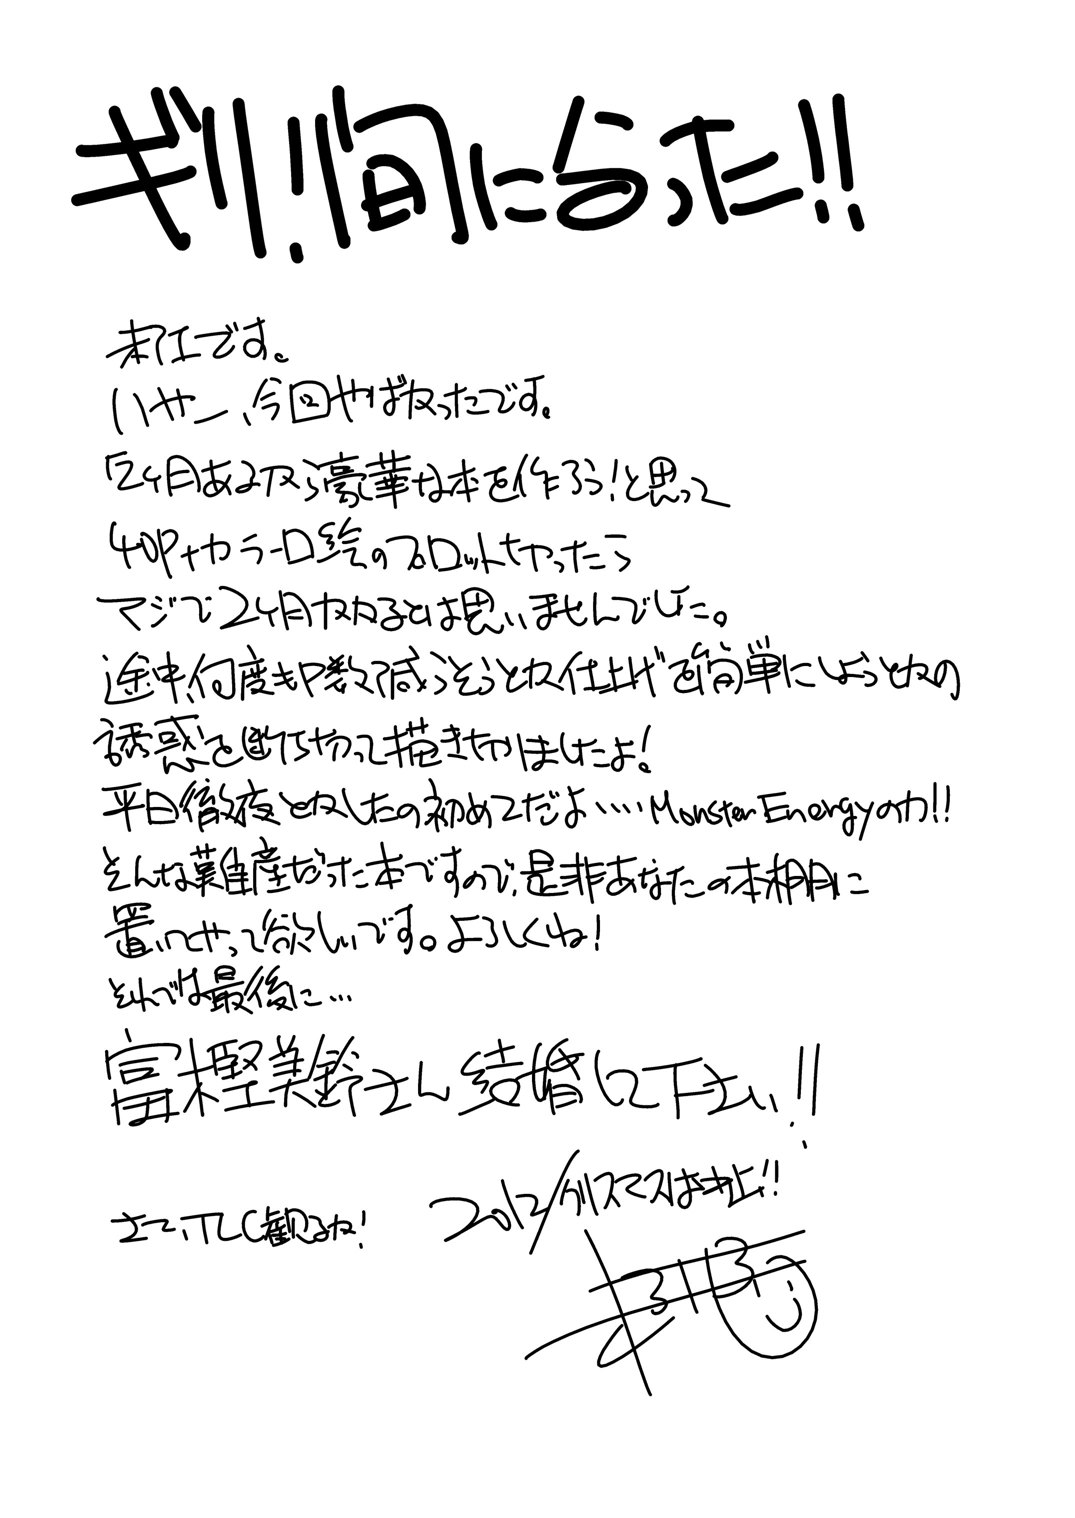 ギリ!間にあった!!
です。
いやー、今回やばかったです。
「2ヶ月あるから豪華な本を作ろう!と思って
40P+カラー口絵のプロットやったら
マジで2ヶ月かかるとは思いませんでした。
途中、何度もP数減らそうとか仕上げを簡単にしようとかの
誘惑を断ち切って描ききりましたよ!
平日徹夜とかしたの初めてだよ・・・・・Monster Energyの力!!
そんな難産だった本ですので、是非あなたの本棚に
置いてやって欲しいです。よろしくね!
それでは最後に…
富樫美鈴さん結婚して下さい!!
さて、TLC観るか!
2012/クリスマスは中止!!